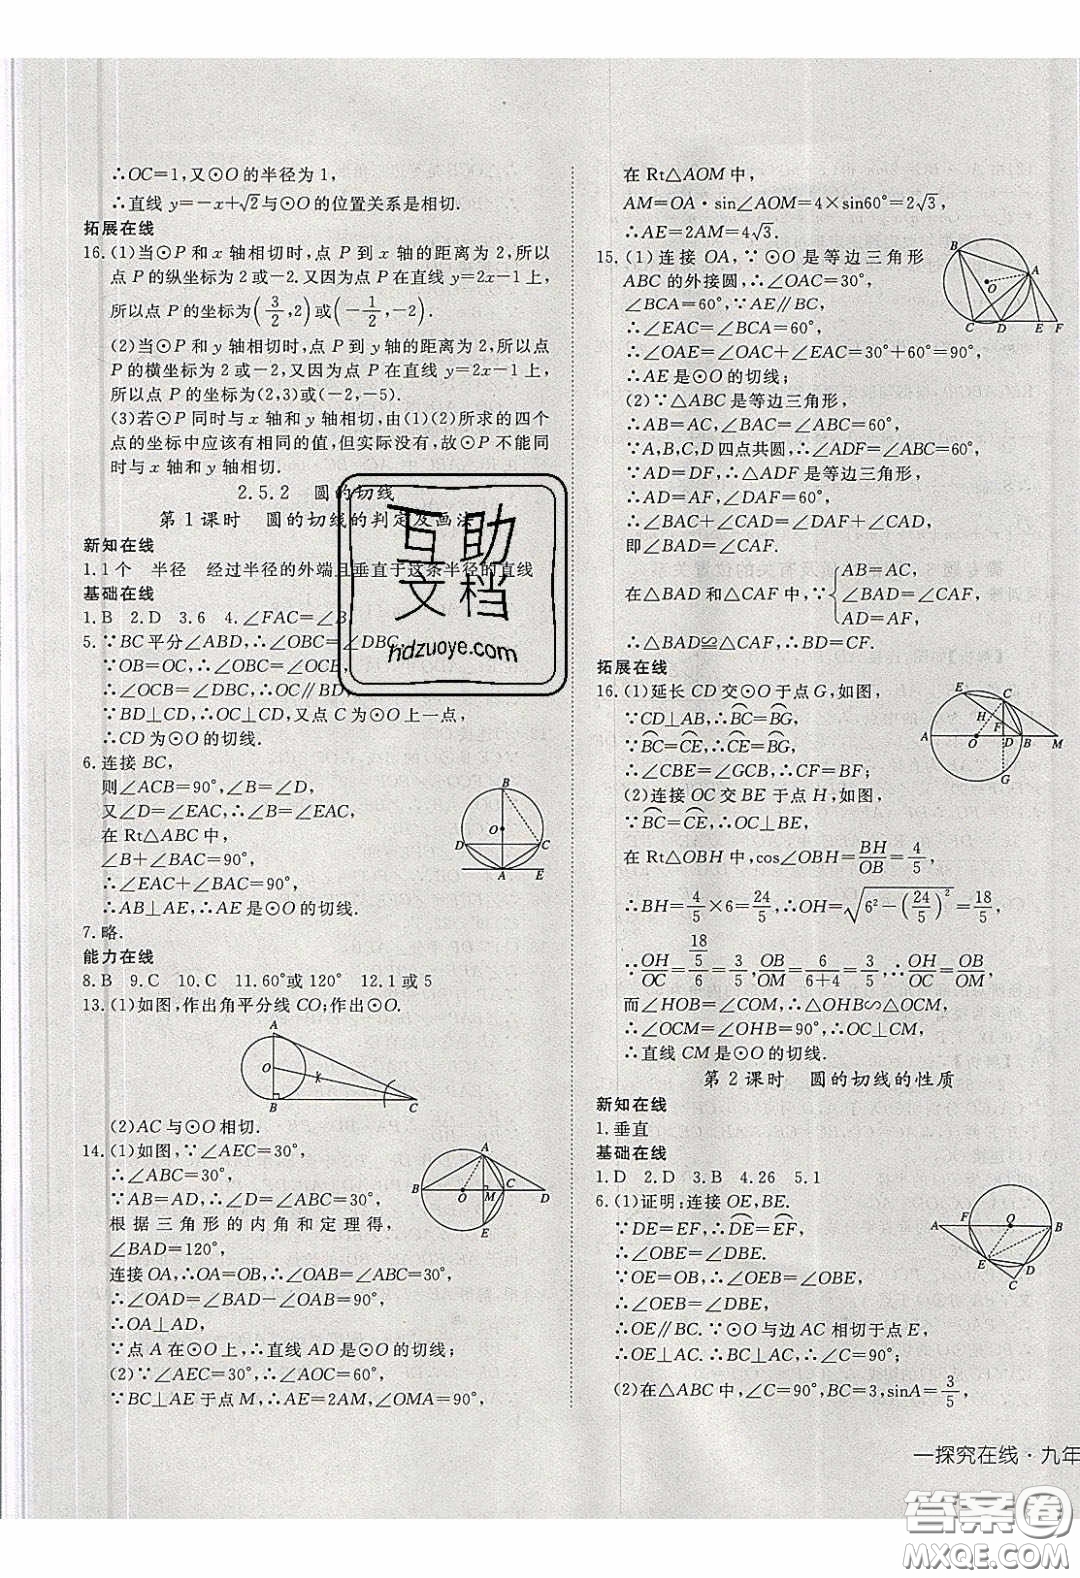 ∴OC=1,又⊙O 的半径为 1,
∴直线 y=-x+√2与⊙O 的位置关系是相切.
拓展在线
16.(1)当⊙P 和 x 轴相切时,点 P 到 x 轴的距离为 2,所以
点 P 的纵坐标为 2 或-2.又因为点 P 在直线 y=2x-1 上,
所以点 P 的坐标为(3/2,2)或(-1/2,-2).
(2)当⊙P 和 y 轴相切时,点 P 到 y 轴的距离为 2,所以点
P 的横坐标为 2 或-2.又因为点 P 在直线 y=2x-1 上,
所以点 P 的坐标为(2,3)或(-2,-5).
(3)若⊙P 同时与 x 轴和 y 轴相切,由(1)(2)所求的四个
点的坐标中应该有相同的值,但实际没有,故⊙P 不能同
时与 x 轴和 y 轴相切.
2.5.2 圆的切线
第 1 课时 圆的切线的判定及画法
新知在线
1.1个 半径 经过半径的外端且垂直于这条半径的直线
基础在线
1.B 2.D 3.6 4.∠FAC=∠B
5.∵BC平分∠ABD,∴∠OBC=∠DBC,
∵OB=OC,∴∠OBC=∠OCB,
∴∠OCB=∠DBC,∴OC∥BD.
∵BD⊥CD,∴OC⊥CD,又点 C 为⊙O 上一点,
∴CD 为⊙O 的切线.
6.连接 BC,
则∠ACB=90°,∠B=∠D,
又∠D=∠EAC,∴∠B=∠EAC,
在 Rt△ABC 中,
∠B+∠BAC=90°,
∴∠EAC+∠BAC=90°,
∴AB⊥AE,∴AE 是⊙O 的切线.
7.略.
能力在线
8.B 9.C 10.C 11.60°或 120° 12.1 或 5
13.(1)如图,作出角平分线 CO;作出⊙O.
(2)AC 与⊙O 相切.
14.(1)如图,∵∠AEC=30°,
∴∠ABC=30°,
∵AB=AD,∴∠D=∠ABC=30°,
根据三角形的内角和定理得,
∠BAD=120°,
连接 OA,∴OA=OB,∴∠OAB=∠ABC=30°,
∴∠OAD=∠BAD-∠OAB=90°,
∴OA⊥AD,
∵点 A 在⊙O 上,∴直线 AD 是⊙O 的切线;
(2)∵∠AEC=30°,∴∠AOC=60°,
∵BC⊥AE 于点 M,∴AE=2AM,∠OMA=90°,
在 Rt△AOM 中,
AM=OA·sin∠AOM=4×sin60°=2√3,
∴AE=2AM=4√3.
15.(1)连接 OA,∵⊙O 是等边三角形
ABC 的外接圆,∴∠OAC=30°,
∠BCA=60°,∵AE∥BC,
∴∠EAC=∠BCA=60°,
∴∠OAE=∠OAC+∠EAC=30°+60°=90°,
∴AE 是⊙O 的切线;
(2)∵△ABC 是等边三角形,
∴AB=AC,∠BAC=∠ABC=60°,
∵A,B,C,D 四点共圆,∴∠ADF=∠ABC=60°,
∵AD=DF,∴△ADF 是等边三角形,
∴AD=AF,∠DAF=60°,
∴∠BAC+∠CAD=∠DAF+∠CAD,
即∠BAD=∠CAF.
在△BAD 和△CAF 中,∵{AB=AC,
∠BAD=∠CAF,
AD=AF,
∴△BAD≌△CAF,∴BD=CF.
拓展在线
16.(1)延长 CD 交⊙O 于点 G,如图,
∵CD⊥AB,∴BC=BG,
∵BC=CE,∴CE=BG,
∴∠CBE=∠GCB,∴CF=BF;
(2)连接 OC 交 BE 于点 H,如图,
∵BC=CE,∴OC⊥BE,
在 Rt△OBH 中,cos∠OBH=BH/OB=4/5,
∴BH=4/5×6=24/5,∴OH=√(6²-(24/5)²)=18/5,
∵OH/OC=(18/5)/6=3/5,OB/OM=6/(6+4)=3/5,∴OH/OC=OB/OM,
而∠HOB=∠COM,∴△OHB∽△OCM,
∴∠OCM=∠OHB=90°,∴OC⊥CM,
∴直线 CM 是⊙O 的切线.
第 2 课时 圆的切线的性质
新知在线
1.垂直
基础在线
1.D 2.D 3.B 4.26 5.1
6.(1)证明:连接 OE,BE.
∵DE=EF,∴DE=EF,
∴∠OBE=∠DBE.
∵OE=OB,∴∠OEB=∠OBE,
∴∠OEB=∠DBE,
∴OE∥BC.∵⊙O 与边 AC 相切于点 E,
∴OE⊥AC.∴BC⊥AC,∴∠C=90°;
(2)在△ABC 中,∠C=90°,BC=3,sinA=3/5,
一探究在线·九年
互助
文档
hdzuoye.com
答案卷
MXQE.COM